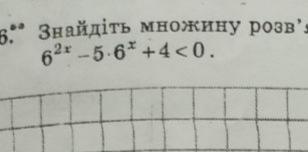 6.•• Знайдіть множину розв'
6²ˣ – 5·6ˣ + 4 < 0.